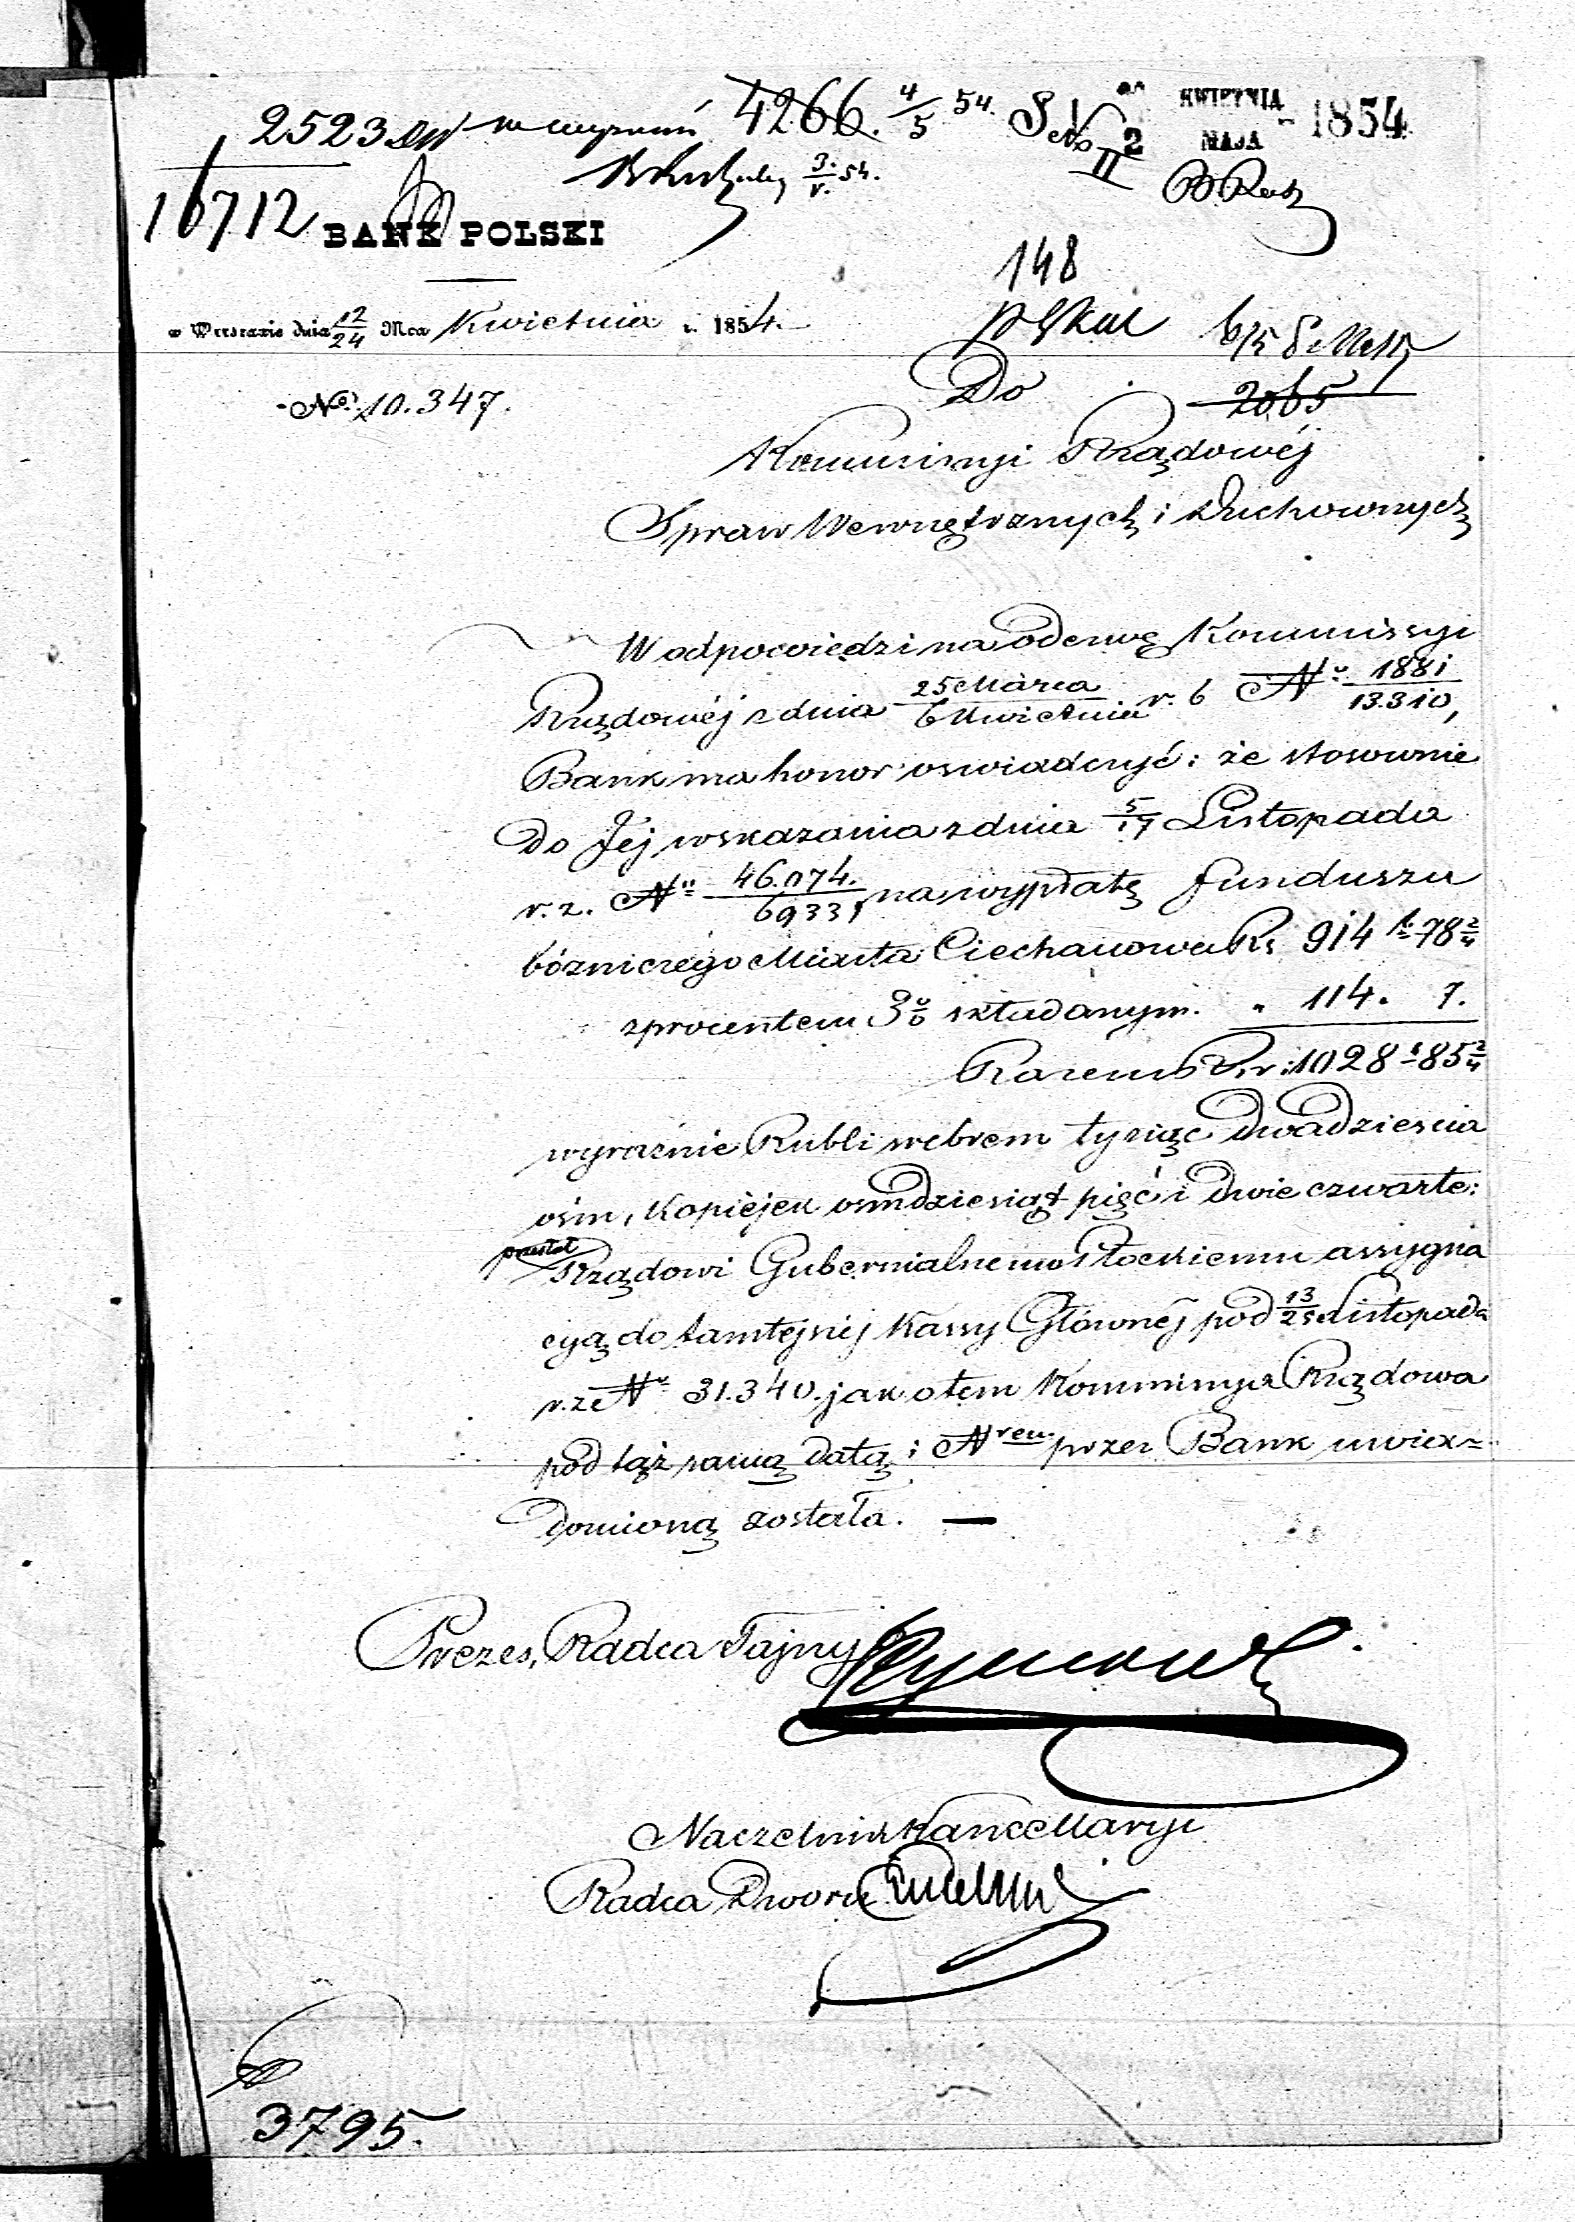 2523 4266. 4/5 54. 2 KWIETNIA MAJA 1854
3/V. 54.
16712 BANK POLSKI
148
w Warszawie dnia 12/24 Mca Kwietnia r. 1854.
6/5
Do
2065
No. 10.347.
Kommissyi Rządowéj
Spraw Wewnętrznych i Duchownych
W odpowiedzi na odezwę Kommissyi
Rządowéj z dnia 25 Marca/6 Kwietnia r. b No 1881/13.310,
Bank ma honor oswiadczyć: że stosownie
do Jéj wskazania z dnia 5/17 Listopada
r. z. No 46.074./6933, na wypłatę funduszu
bóżniczego Miasta Ciechanowa Rs 914 k 78 2/4
z procentem 3% składanym. " 114. 7.
Razem Rsr. 1028 k 85 2/4
wyraźnie Rubli srebrem tysiąc dwadziescia
ośm, kopiejek osmdziesiąt pięć i dwie czwarte:
przesłał
Rządowi Gubernialnemu Płockiemu assygna
cyą do tamtejszéj Kassy Głównéj pod 13/25 Listopada
r. z No 31.340. jak o tem Kommissya Rządowa
pod tąż samą datą i Nrem przez Bank uwia-
domioną została. —
Prezes, Radca Tajny
Naczelnik Kancellaryi
Radca Dworu
3795.